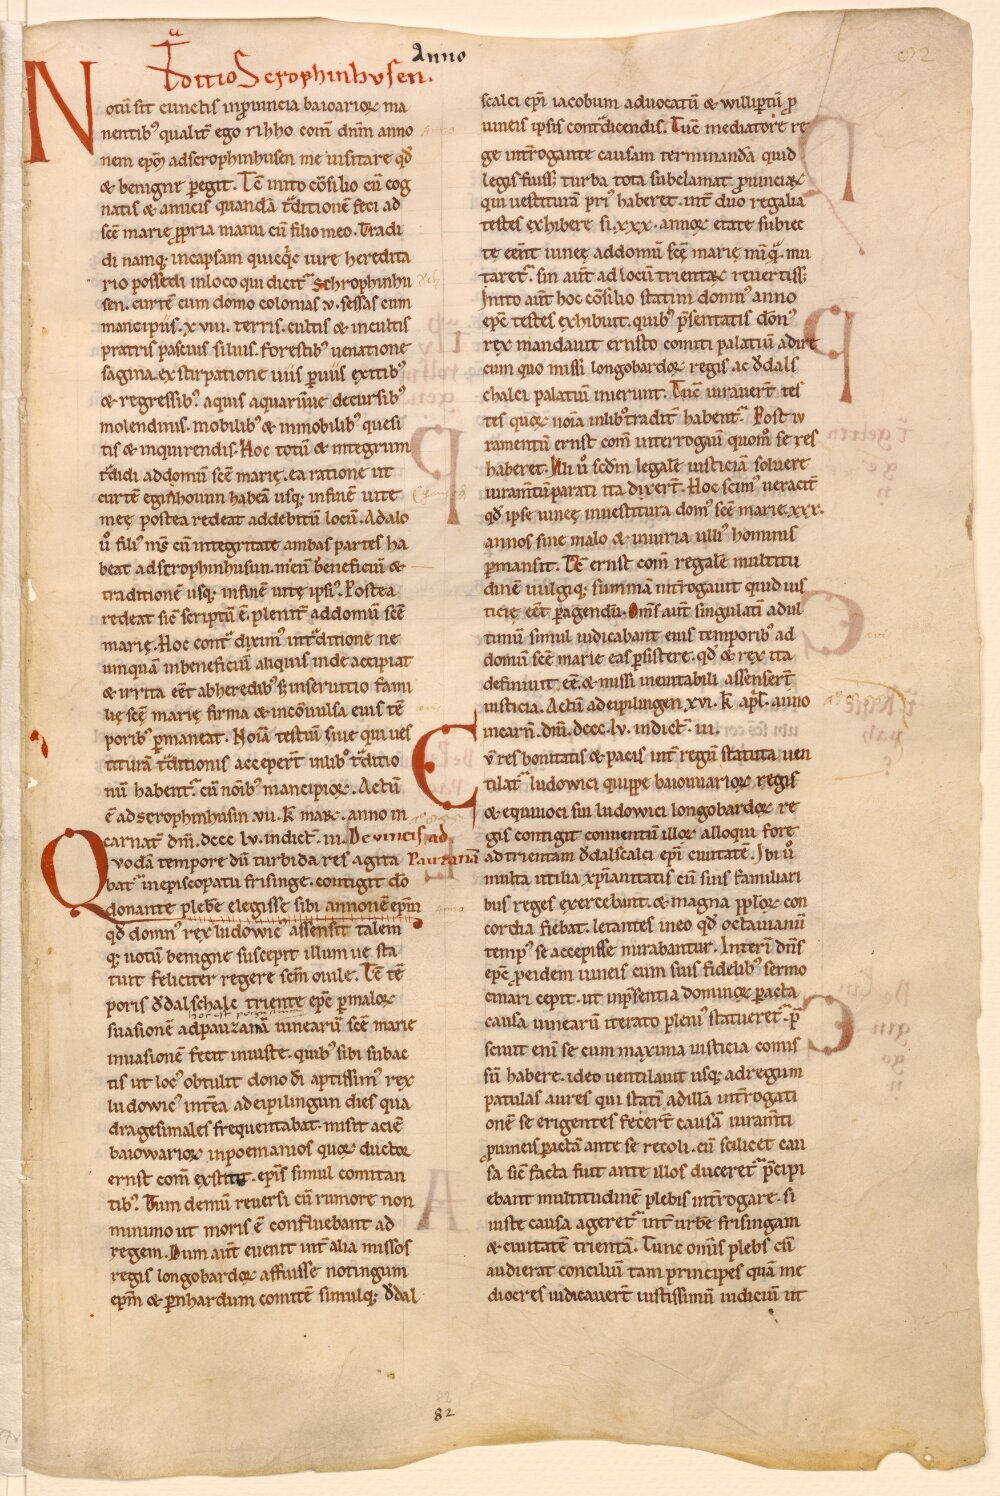 Anno
Tͣditio Scrophinhusen.
Notū sit cunctis in ꝓuincia baioarioꝝ ma
nentib; qualit̄ ego rihho com̄ dnm̄ anno
nem epm̄ ad scrophinhusen me uisitare qđ
& benigne ꝑegit. Tc̄ inito cōsilio cū cog
natis & amicis quandā tͣditionē feci ad
scē marie ꝓpria manu cū filio meo. Tradi
di namq; in capsam quicqͥc iure heredita
rio possedi in loco qui dicit᷑ Schrophinhu
sen. curtē cum domo colonias .v. sessas cum
mancipiis .xviii. terris. cultis & incultis
pratis pascuis siluis. forestib; uenatione
sagina. exstirpatione uiis ꝑuiis exitib;
& regressib;. aquis aquarūue decursib;
molendinis. mobilib; & inmobilib; quesi
tis & inquirendis. Hoc totū & integrum
tͣdidi ad domū scē marię. ea ratione ut
curtē eginhouun habeā usq; in finē uite
meę postea redeat ad debitū locū. Adalo
u͛o fili᷒ ms̄ cū integritate ambas partes ha
beat ad scrophinhusun. in eiū beneficiū &
traditionē usq; in finē uitę ipsi᷒. Postea
redeat sic̄ scriptū ē. plenit̄ ad domū scē
marię. Hoc contͣ dixim᷒ in tͣditione ne
umquā in beneficiū aliquis inde accipiat
& irrita eēt ab heredib; s; in seruitio fami
lię scē marię firma & incōuulsa eius tē
porib; ꝑmaneat. Noīa testiū siue qui ues
titurā tͣditionis acceper̄t in lib͛o tͣditio
nū habent᷑. cū nōib; mancipioꝝ. Actū
ē ad scrophinhusin .vii. k̄ mar̄. anno in
carnat̄ dm̄. dccc lv. indict̄. iii. De uineis ad
Pauzanū
Quodā tempore dū turbida res agita
bat᷑ in episcopatu frisinge. contigit do͞
donante plebē elegisse sibi annonē epm̄
qđ domn᷒ rex ludowic᷒ assensit talem
q; uotū benigne suscepit illum ue sta
tuit feliciter regere scm̄ ouile. Tc̄ tē
poris ođalschalc triente epc̄ ꝑ maloꝝ
suasionē ad pauzanā uinearū scē marie
inuasionē fecit iniuste. quib; sibi subac
tis ut loc᷒ obtulit dono di͞ aptissim᷒ rex
ludowic᷒ int̄ea ad eipilingun dies qua
dragesimales frequentabat. misit aciē
baiowarioꝝ in poemanios quoꝝ ductor
ernst com̄ exstitit. epis̄ simul comitan
tib;. Tum demū reuersi cū rumore non
minimo ut moris ē confluebant ad
regem. Dum aut̄ euenit int̄ alia missos
regis longobardoꝝ affuisse notingum
epm̄ & ꝑnhardum comitē simulq; ođal
scalci epi͞ iacobum aduocatū & willipertū ꝓ
uineis ipsis contͣdicendis. Tūc mediatore re
ge int̄rogante causam terminandā quid
legis fuiss; turba tota subclamat ꝓuinciaꝝ
qui uestiturā pri᷒ haberet. int̄ duo regalia
testes exhibere si .xxx. annoꝝ etate subiec
te eēnt uineę ad domū scē marię miq͛. mu
taret᷑. sin aut̄ ad locū trientaꝝ reuertiss;
Inito aut̄ hoc cōsilio statim domn᷒ anno
epc̄ testes exhibuit. quib; p̄sentatis don᷒
rex mandauit ernsto comiti palatiū adire
cum quo missi longobardoꝝ regis. ac ođals
chalci palatiū inierunt. Tūc iurauer̄t tes
tes quoꝝ noīa in lib͛o traditū habent᷑. Post iu
ramentū ernst com̄ interrogaū quom͛o se res
haberet. Illi u͛o scdm̄ legale iusticiā soluere
iuram̄tū parati ita dixer̄t. Hoc scim᷒ ueracit̄
qđ ipse uineę in uestitura dom᷒ scē marie .xxx.
annos sine malo & iniuria ulli᷒ hominis
ꝑmansit. Tc̄ ernst com̄ regalē multitu
dinē uulgiq; summā int̄rogauit quid ius
ticię eēt ꝑagendū. Om̄s aut̄ singulati adul
timū simul iudicabant eius temporib; ad
domū scē marie eas ꝑsistere. qđ & rex ita
definiuit eē. & missi ineuitabili assenser̄t
iusticia. Actū ad eipilingen .xvi. k̄ apl̄. anno
incarn̄. dm̄. dccc. lv. indict̄. iii.
Cv̄ res bonitatis & pacis int̄ regū statuta uen
tilat᷑ ludowici quippe baiouuarioꝝ regis
& equiuoci sui ludowici longobardoꝝ re
gis contigit conuentū illoꝝ alloqui fore
ad trientam ođalscalci epi͞ ciuitatē. Ibi u͛o
multa utilia xp̄ianitatis cū suis familiari
bus reges exercebant. & magna ꝓploꝝ con
cordia fiebat. letantes in eo qđ octauianū
temp᷒ se accepisse mirabantur. Interī dn̄s
epc̄ ꝓ eidem uineis cum suis fidelib; sermo
cinari cepit. ut in p̄sentia dominoꝝ ꝑacta
causa uinearū iterato pleni᷒ statueret᷑. p̄
sciuit eni͞ se cum maxima iusticia comis
sū habere. ideo uentilauit usq; ad regum
patulas aures qui stati͞ ad illā int̄rogati
onē se erigentes fecer̄t causā iuram̄ti
ꝓ uineis ꝑactā ante se recoli. cū scilicet cau
sa sic̄ facta fuit ante illos duceret᷑ p̄cipi
ebant multitudinē plebis int̄rogare. si
iuste causa ageret᷑ int̄ urbē frisingam
& ciuitatē trientā. Tunc omīs plebs cū
audierat conciliū tam principes quā me
diocres iudicauer̄t iustissimū iudiciū ut
82